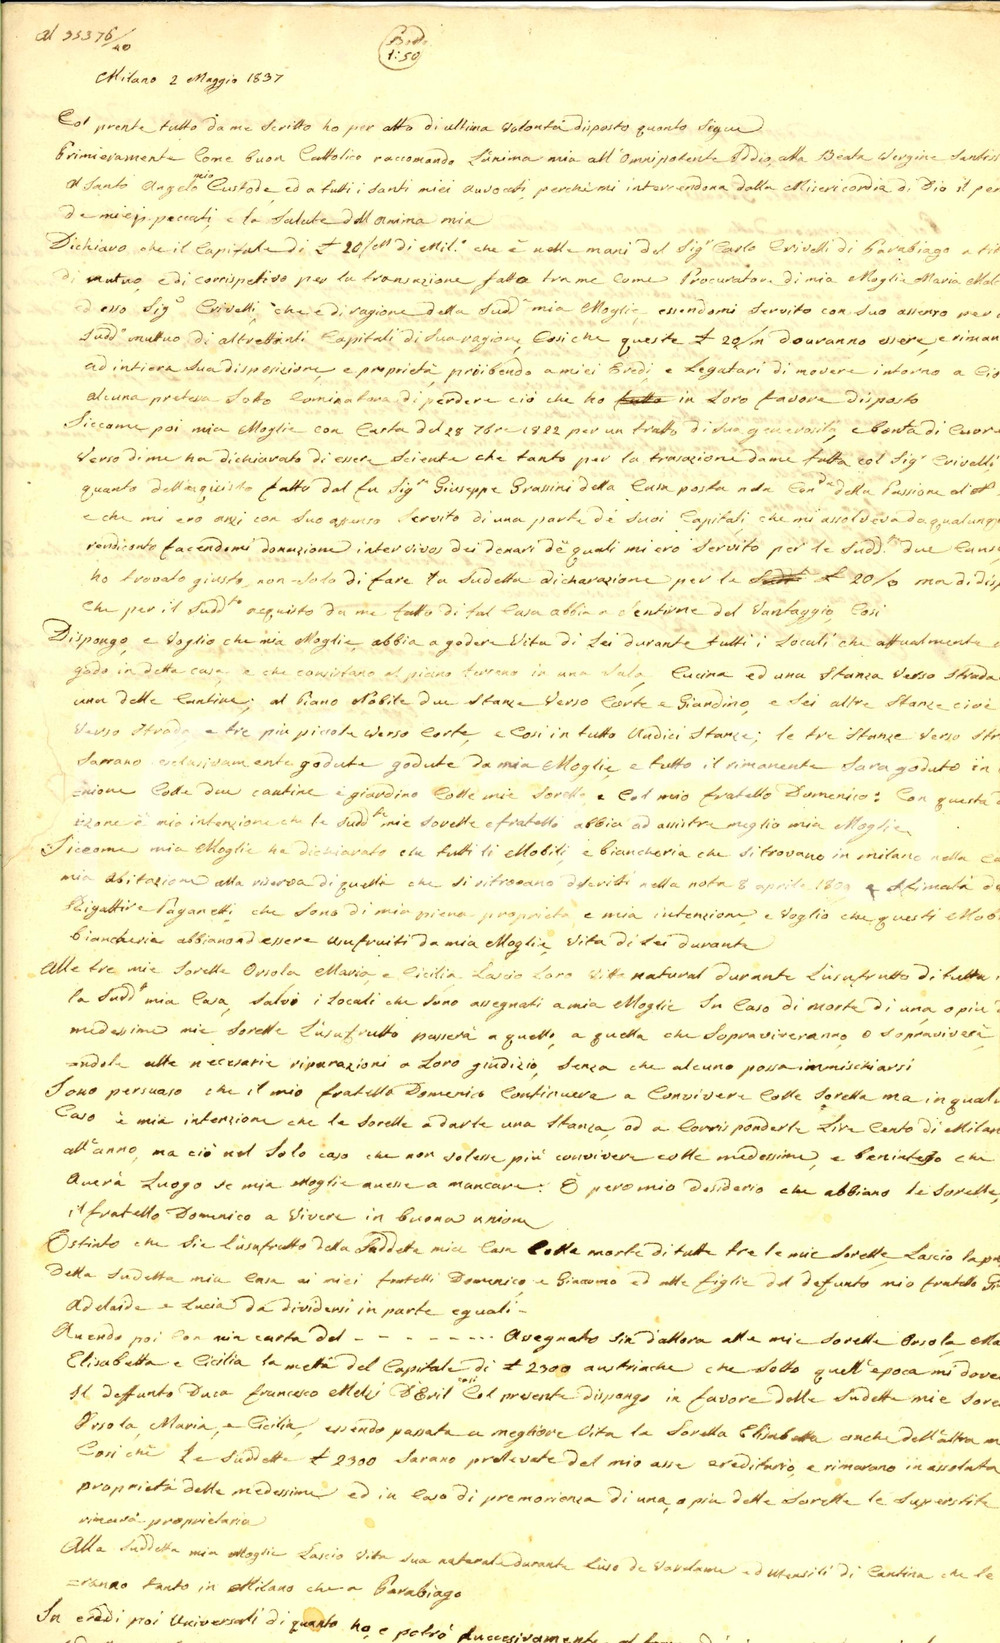 al 35376/40
Bollo
1:50
Milano 2 Maggio 1837
Col prente tutto da me scritto ho per atto di ultima volontà disposto quanto segue
Primieramente Come buon Cattolico raccomando L'anima mia all'Omnipotente Iddio, alla Beata Vergine Santiss
al Santo Angelo mio Custode, ed a tutti i Santi miei avvocati, perchè mi intercendona dalla Misericordia di Dio il per
de miei peccati, e la Salute dell'anima mia
Dichiaro che il Capitale di £ 20/m di Mil.o che è nelle mani del Sigr Carlo Crivelli di Parabiago a tit
di mutuo, e di corrispetivo per la transazione fatta tra me Come Procuratore di mia Moglie Maria
ed esso Sigr Crivelli, che è di ragione della Sudda mia Moglie, essendomi servito con suo assenso per
Suddo mutuo di altrettanti Capitali di Sua ragione, Cosi che queste £ 20/m dovranno essere, e riman
ad intiera sua disposizione, e proprietà, proibendo a miei Eredi, e Legatari di movere intorno a Ciò
alcuna pretesa Sotto Cominatoria di perdere ciò che ho tutto in Loro favore disposto
Siccome poi mia Moglie con Carta del 28 7bre 1822 per un tratto di sua generosità, e bontà di Cuore
verso di me ha dichiarato di essere Sciente che tanto per la trasazione da me fatta col Sigr Crivelli
quanto dell'aquisto fatto dal fu Sigr Giuseppe Grassini della Casa posta nella Conda della Passione al
e che mi ero anzi con suo assenso Servito di una parte de Suoi Capitali, che mi assolveva da qualunque
rendiconto facendomi donazione intervivos dei denari de quali mi ero servito per le Sudde due Cause
ho trovato giusto, non solo di fare la Sudetta dicharazione per le £ 20/m ma di disp
che per il Suddto acquisto da me fatto di tal Casa abbia a sentirne del Vantaggio, Cosi
Dispongo, e Voglio che mia Moglie, abbia a godere Vita di Lei durante tutti i Locali che attualmente
godo in detta casa, e che consistano al piano terreno in una Sala, Cucina ed una Stanza Verso Strada
una delle Cantine; al Piano Nobile due Stanze Verso Corte e Giardino, e Sei altre Stanze cioè
Verso Strada e tre più piccole Verso Corte, e Cosi in tutto Undici Stanze; le tre Stanze Verso Str
Sarano esclusivamente godute godute da mia Moglie e tutto il rimanente Sara goduto in
=nione Colle due cantine e giardino Colle mie Sorelle e Col mio fratello Domenico: Con questa
izione è mia intenzione che le Sudde mie Sorelle e fratello abbia ad assistre meglio mia Moglie
Siccome mia Moglie ha dichiarato che tutti li Mobili, e biancheria che si trovano in milano nella Ca
mia abitazione alla riserva di quelli che si ritrovano descriti nella nota 8 aprile e Stimata da
Rigattire Paganetti, che sono di mia piena proprietà e mia intenzione, e Voglio che questi Mobi
biancheria abbiano ad essere usufruiti da mia Moglie, Vita di Lei durante
Alle tre mie Sorelle Orsola Maria, e Cicilia, Lascio Loro Vita natural durante L'usufrutto di tutta
la Sudda mia Casa, Salvo i Locali che sono assegnati a mia Moglie In Caso di morte di una o piu d
medessime mie Sorelle L'usufrutto passerà a quello, a quella che Sopraviveranno, o Sopraviverà
=ndola alle necesarie riparazioni a Loro giudizio, Senza che alcuno possa immischiarsi
Sono persuaso che il mio fratello Domenico Continuera a Convivere Colle Sorella ma in qualu
Caso è mia intenzione che le Sorelle a darle una Stanza, od a Corrisponderle Lire Cento di Milan
all'anno, ma ciò nel Solo caso che non volesse più convivere colle medessime, e beninteso che
Averà Luogo se mia Moglie avesse a mancare: È però mio desiderio che abbiano le Sorelle,
il fratello Domenico a Vivere in buona unione
Estinto che sie L'usufrutto della Suddetta mia Casa Colla morte di tutte tre le mie Sorelle, Lascio la pro
della Sudetta mia Casa ai miei fratelli Domenico, e Giacomo ed alle figlie del defunto mio fratello Gi
Adelaide e Lucia da dividersi in parte eguali -
Avendo poi Con mia carta del - - - - - - - Assegnato Sin d'allora alle mie Sorelle Orsola, Ma
Elisabetta e Cicilia la metà del Capitale di £ 2300 austriache che Sotto quell'epoca mi dove
Il deffunto Duca Francesco Melzi D'Eril così Col presente dispongo in favore delle Sudette mie Sore
Orsola, Maria, e Cicilia, essendo passata a megliore Vita la Sorella Elisabetta anche dell'altra m
Cosi chè Le Suddette £ 2300 Sarano prelevate dal mio asse ereditario, e rimarano in assoluta
proprietà delle medessime ed in Caso di premorienza di una, o piu delle Sorelle le Superstite
rimarà proprietaria
Alla Suddetta mia Moglie Lascio Vita sua naturale durante L'uso de Vasellame ed Utensili di Cantina che le
=ranno tanto in Milano che a Parabiago
In eredi poi Universali di quanto ho, e potrò successivamente